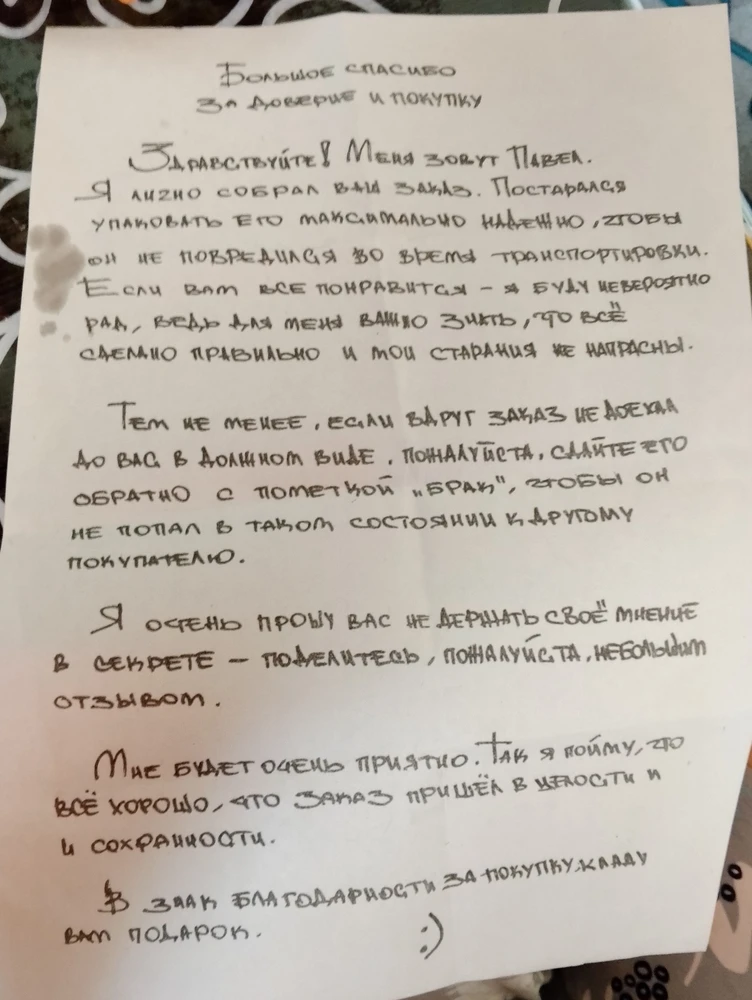 Большое спасибо
за доверие и покупку
Здравствуйте! Меня зовут Павел.
Я лично собрал ваш заказ. Постарался
упаковать его максимально надежно, чтобы
он не повредился во время транспортировки.
Если вам все понравится – я буду невероятно
рад, ведь для меня важно знать, что всё
сделано правильно и мои старания не напрасны.
Тем не менее, если вдруг заказ не доехал
до вас в должном виде, пожалуйста, сдайте его
обратно с пометкой „брак", чтобы он
не попал в таком состоянии к другому
покупателю.
Я очень прошу вас не держать своё мнение
в секрете – поделитесь, пожалуйста, небольшим
отзывом.
Мне будет очень приятно. Так я пойму, что
всё хорошо, что заказ пришёл в целости и
и сохранности.
В знак благодарности за покупку, кладу
вам подарок. :)